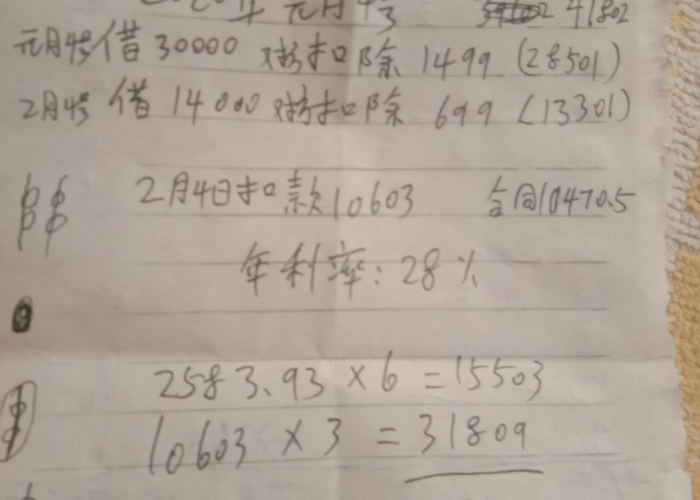 年 元月4号 41802
元月4号借30000 扣除1499 (28501)
2月4号借14000 扣除 699 (13301)
2月4日扣款10603 合同10470.5
年利率:28%
2583.93×6=15503
10603×3=31809